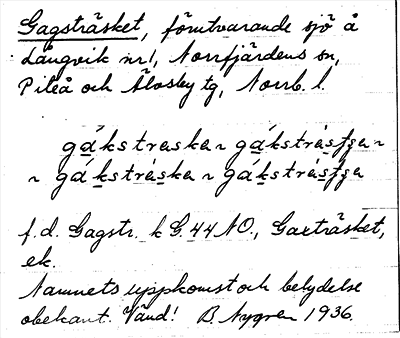 Gagsträsket, förutvarande sjö å
Långvik nr 1, Norrfjärdens sn,
Piteå och Älvsby tg, Norrb. l.
gákstraska ~ gákstràsʃʒa ~
~ gákstràska ~ gákstràsʃʒa
f.d. Gagstr. k G. 44 NO., Gaxträsket,
ek.
Namnets uppkomst och betydelse
obekant. Vänd! B. Nygren 1936.